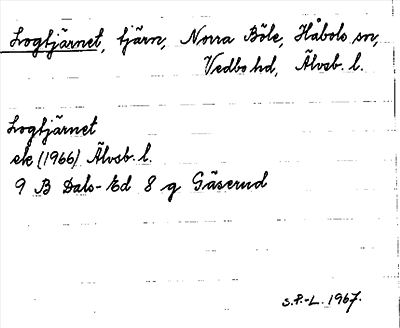 Logtjärnet, tjärn, Norra Böle, Håbols sn,
Vedbo hd, Älvsb. l.
Logtjärnet
ek (1966) Älvsb. l.
9 B Dals-Ed 8 g Gäserud
S.P.-L. 1967.